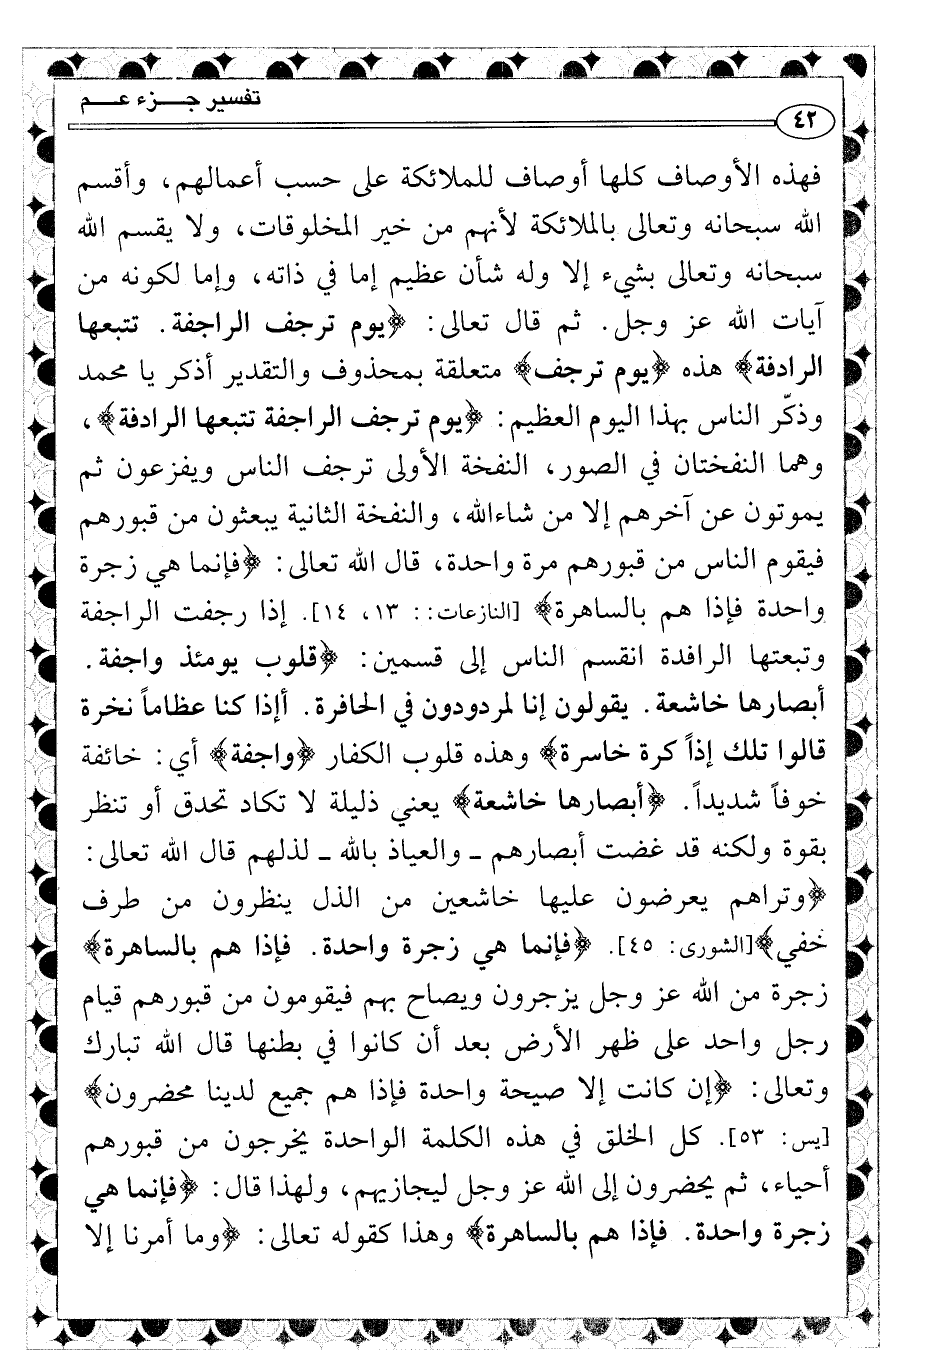 تفسير جـــزء عـــم
٤٢
فهذه الأوصاف كلها أوصاف للملائكة على حسب أعمالهم، وأقسم
الله سبحانه وتعالى بالملائكة لأنهم من خير المخلوقات، ولا يقسم الله
سبحانه وتعالى بشيء إلا وله شأن عظيم إما في ذاته، وإما لكونه من
آيات الله عز وجل. ثم قال تعالى: ﴿يوم ترجف الراجفة. تتبعها
الرادفة﴾ هذه ﴿يوم ترجف﴾ متعلقة بمحذوف والتقدير أذكر يا محمد
وذكّر الناس بهذا اليوم العظيم: ﴿يوم ترجف الراجفة تتبعها الرادفة﴾،
وهما النفختان في الصور، النفخة الأولى ترجف الناس ويفزعون ثم
يموتون عن آخرهم إلا من شاءالله، والنفخة الثانية يبعثون من قبورهم
فيقوم الناس من قبورهم مرة واحدة، قال الله تعالى: ﴿فإنما هي زجرة
واحدة فإذا هم بالساهرة﴾ [النازعات:: ١٣، ١٤]. إذا رجفت الراجفة
وتبعتها الرافدة انقسم الناس إلى قسمين: ﴿قلوب يومئذ واجفة.
أبصارها خاشعة. يقولون إنا لمردودون في الحافرة. أإذا كنا عظاماً نخرة
قالوا تلك إذاً كرة خاسرة﴾ وهذه قلوب الكفار ﴿واجفة﴾ أي: خائفة
خوفاً شديداً. ﴿أبصارها خاشعة﴾ يعني ذليلة لا تكاد تحدق أو تنظر
بقوة ولكنه قد غضت أبصارهم ـ والعياذ بالله ـ لذلهم قال الله تعالى:
﴿وتراهم يعرضون عليها خاشعين من الذل ينظرون من طرف
خفي﴾[الشورى: ٤٥]. ﴿فإنما هي زجرة واحدة. فإذا هم بالساهرة﴾
زجرة من الله عز وجل يزجرون ويصاح بهم فيقومون من قبورهم قيام
رجل واحد على ظهر الأرض بعد أن كانوا في بطنها قال الله تبارك
وتعالى: ﴿إن كانت إلا صيحة واحدة فإذا هم جميع لدينا محضرون﴾
[يس: ٥٣]. كل الخلق في هذه الكلمة الواحدة يخرجون من قبورهم
أحياء، ثم يحضرون إلى الله عز وجل ليجازيهم، ولهذا قال: ﴿فإنما هي
زجرة واحدة. فإذا هم بالساهرة﴾ وهذا كقوله تعالى: ﴿وما أمرنا إلا